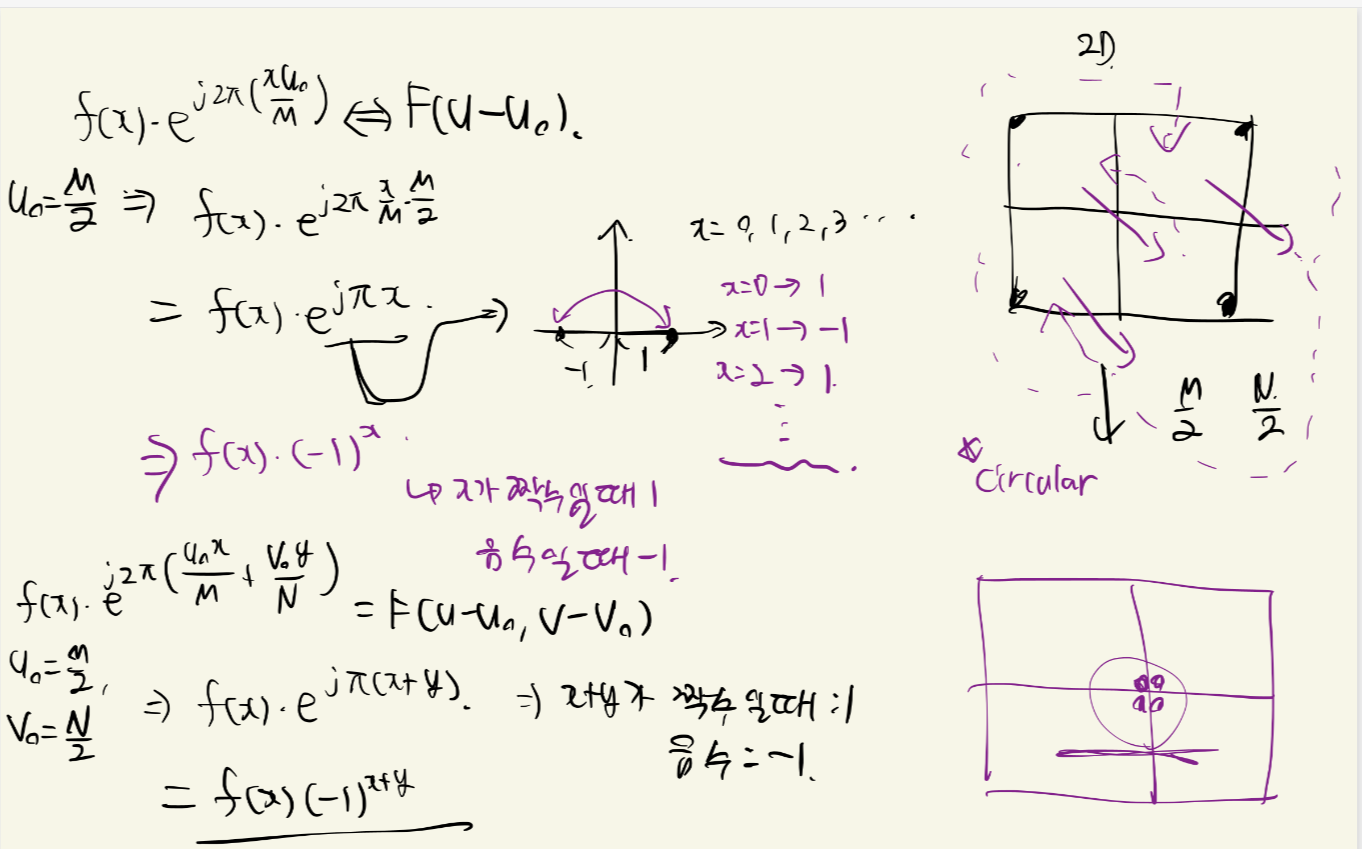 f(x)·e^{j2π(xu₀/M)} ⇔ F(u-u₀).
u₀=M/2 ⇒ f(x)·e^{j2π x/M·M/2}
= f(x)·e^{jπx}. →
-1 1
x= 0, 1, 2, 3 ····
x=0→ 1
x=1→ -1
x=2→ 1.
⋮
⇒ f(x)·(-1)^x
↳ x가 짝수일때 1
음수일때 -1.
f(x)·e^{j2π(u₀x/M + v₀y/N)} = F(u-u₀, v-v₀)
u₀=M/2,
v₀=N/2
⇒ f(x)·e^{jπ(x+y)}. ⇒ x+y가 짝수일때 :1
음수 = -1.
= f(x)(-1)^{x+y}
2D.
M/2 N/2
* Circular